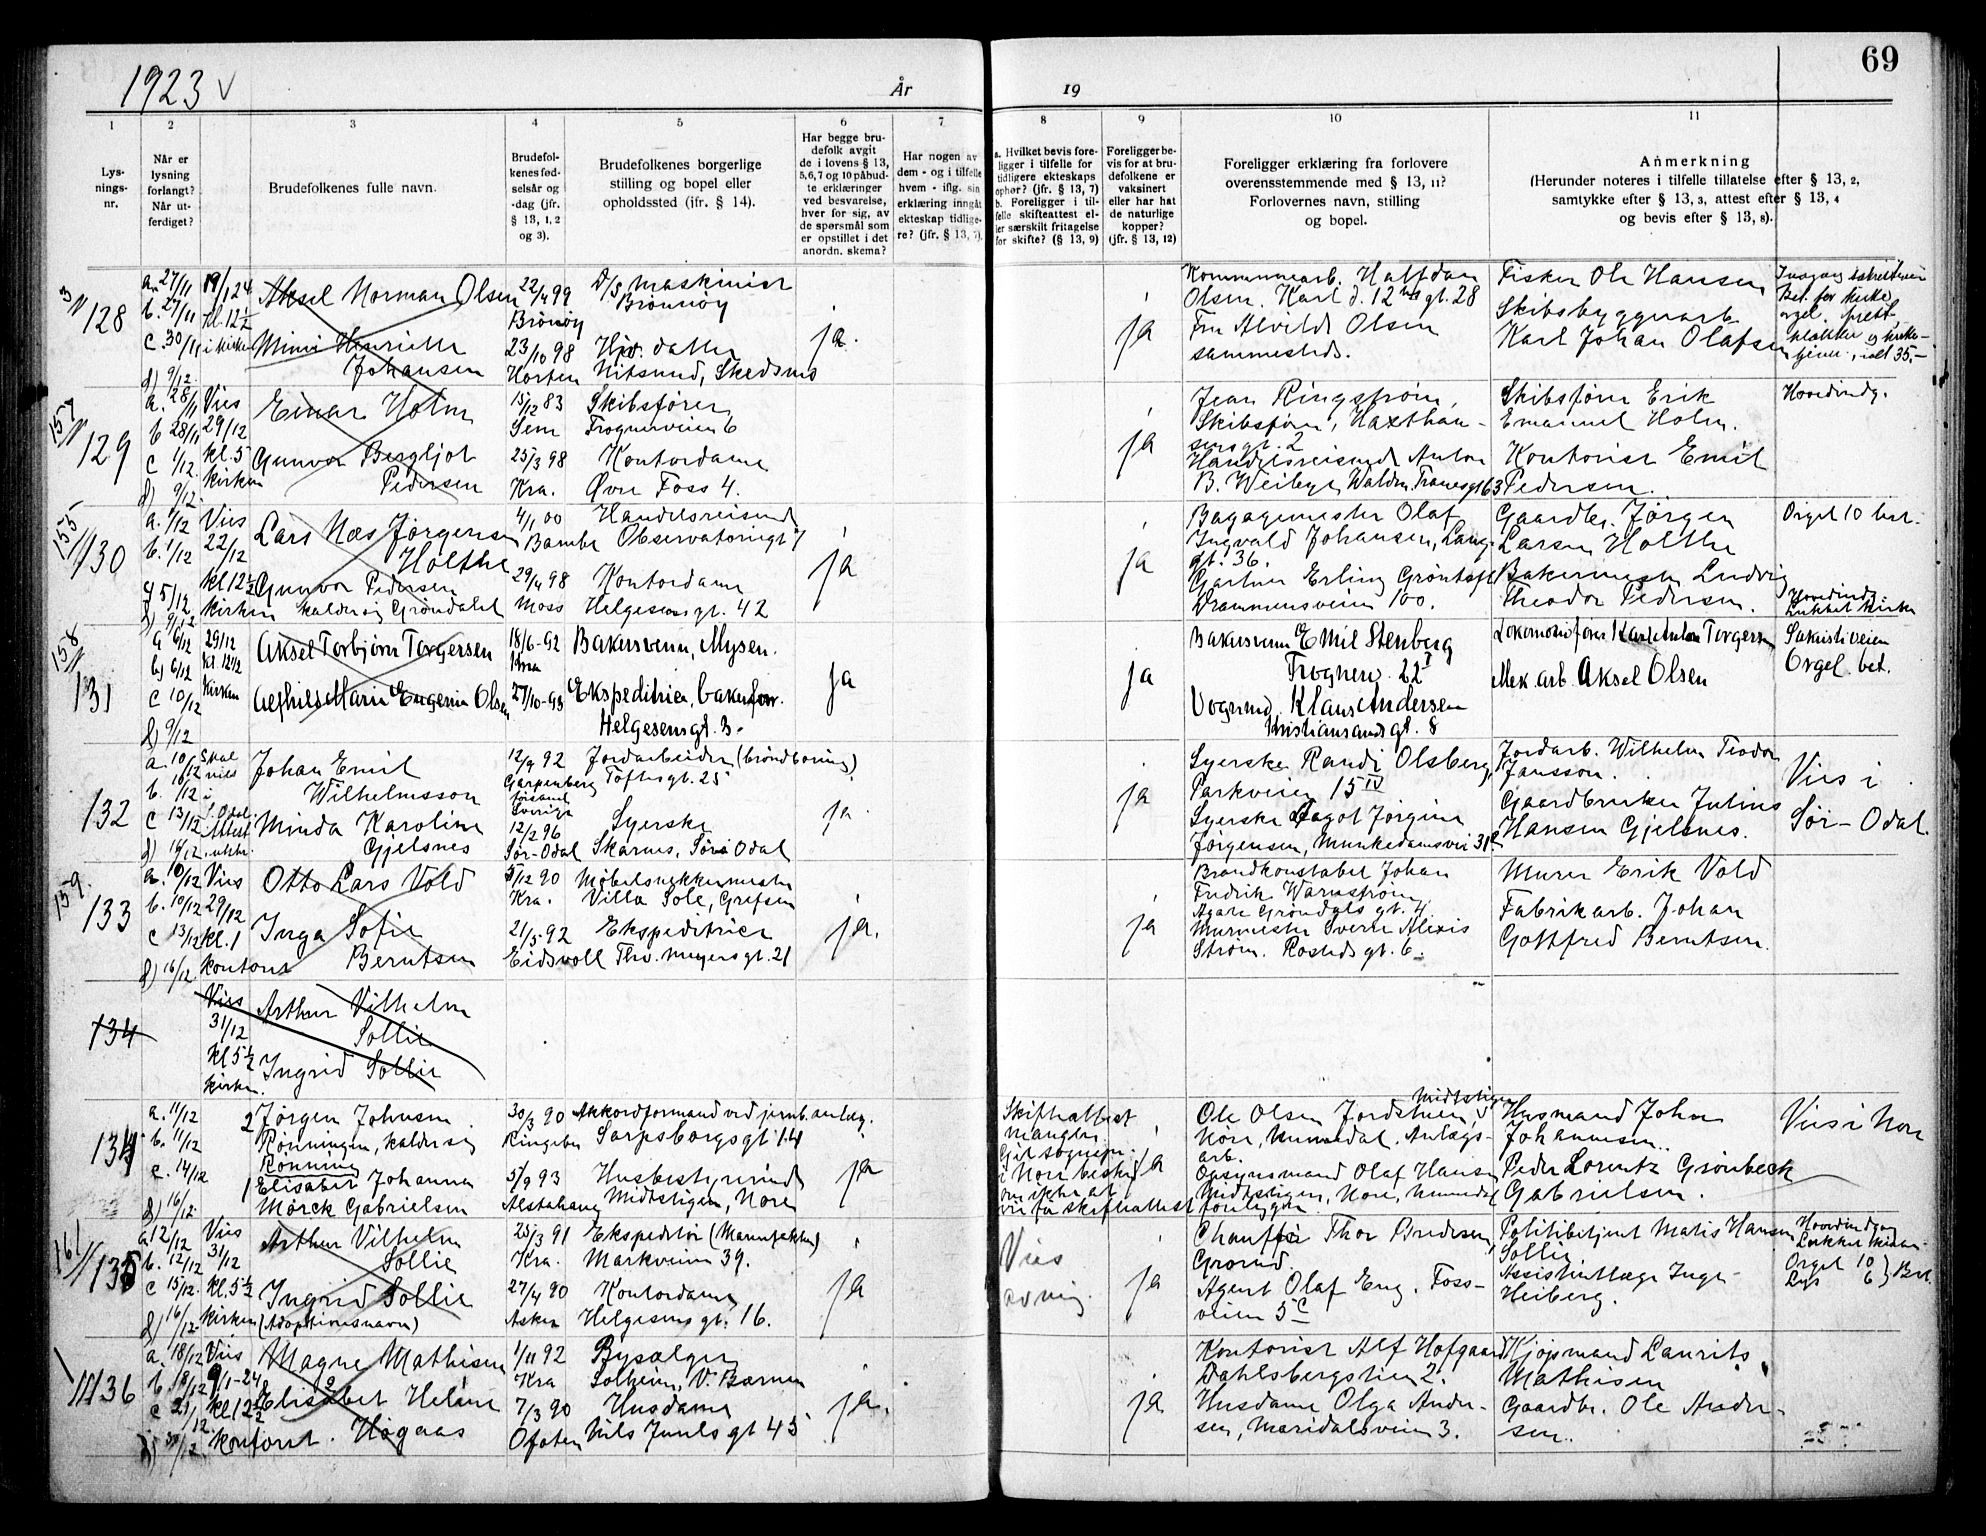 1923 v
År
19
69
1
2
3
4
5
6
7
8
9
10
11
Lys-
nings-
nr.
Når er
lysning
forlangt?
Når ut-
ferdiget?
Brudefolkenes fulle navn.
Brudefol-
kenes fød-
selsår og
-dag (jfr.
§ 13, 1, 2
og 3).
Brudefolkenes borgerlige
stilling og bopel eller
opholdssted (ifr. § 14).
Har begge bru-
defolk avgit
de i lovens § 13,
5, 6, 7 og 10 påbud-
te erklæringer
ved besvarelse,
hver for sig, av
de spørsmål som
er opstillet i det
anordn. skema?
Har nogen av
dem - og i tilfelle
hvem - iflg. sin
erklæring inngåt
ekteskap tidlige-
re? (jfr. § 13, 7).
a. Hvilket bevis fore-
ligger i tilfelle for
tidligere ekteskaps
ophør? (jfr. § 13, 7)
b. Foreligger i til-
felle skifteattest el-
ler særskilt fritagelse
for skifte? (§ 13, 9)
Foreligger be-
vis for at bru-
defolkene er
vaksinert
eller har hat
de naturlige
kopper?
(jfr. § 13, 12)
Foreligger erklæring fra forlovere
overensstemmende med § 13, 11?
Forlovernes navn, stilling
og bopel.
Anmerkning
(Herunder noteres i tilfelle tillatelse efter § 13, 2,
samtykke efter § 13, 3, attest efter § 13, 4
og bevis efter § 13, 8).
128
a. 27/11
b. 27/11
c. 30/11
d) 9/12
19/1 24
kl. 12½
i kirken
Aksel Norman Olsen
Mimi Henriette
Johansen
22/4 99
Brönnöy
23/10 98
Horten
D/S maskinist
Brönnöy
Hjv. datter
Nitsund, Skedsmo
ja.
ja
Kommunearb. Halfdan
Olsen. Karl d. 12tes gt. 28
Fru Alvilde Olsen
sammesteds.
Fisker Ole Hansen
Skibsbyggerarb.
Karl Johan Olafsen
Bet. for kirke,
orgel, prest,
klokker og kirke-
tjener, ialt 35.-
157
129
a. 28/11
b 28/11
c 1/12
d) 9/12
Vies
29/12
kl. 5
kirken
Einar Holm
Gunvor Bergljot
Pedersen
15/12 83
Sem
25/3 98
Kra.
Skibsfører,
Frognerveien 6
Kontordame
Øvre Foss 4.
ja
Jean Ringstrøm,
Skibsfører, Haxthau-
sensgt. 2
Handelsreisende Anton
B. Weiby, Waldm. Tranesgt 63
Skibsfører Erik
Emanuel Holm.
Kontorist Emil
Pedersen.
Hovedindg.
155
130
a. 1/12
b. 1/12
c 5/12
d) 9/12
Vies
22/12
kl 12½
kirken
Lars Næs Jørgensen
Holthe
Gunvor Pedersen
kalder sig Gröndahl
4/1 00
Bamble
29/4 98
Moss
Handelsreisende
Observatoriegt 7
Kontordame
Helgesens gt. 42
ja
ja
Bagagemester Olaf
Ingvald Johansen, Lang-
gt. 36.
Gartner Erling Gröntoft
Drammensveien 100.
Gaardbr. Jørgen
Larsen Holthe
Bakermester Ludvig
Theodor Pedersen.
Orgel 10 bet.
158
131
a 6/12
b) 6/12
c 10/12
d) 9/12
29/12
Kl. 12½
Kirken
Aksel Torbjörn Torgersen
Marie Eugenie Olsen
18/6-92
27/10-93
Bakersvenn, Mysen.
Ekspeditrice, bakerforr.
Helgesensgt. 3.
ja
ja
Bakersvenn Emil Stenberg
Frognerv. 22 I
Vognmd. Klaus Andersen
Kristiansandsgt. 8
Lokomotivfører Karl Anton Torgersen
Mek. arb. Aksel Olsen
Hovedindg
Lukket kirke
Sakristiveien
Orgel. bet.
132
a. 10/12
b. 10/12
c 13/12
d) 16/12
Skal
vies
i
S. Odal.
Attest
utst.
Johan Emil
Wilhelmsson
Minda Karoline
Gjelsnes
12/9 92
Garpenberg
Sverige
12/2 96
Sør-Odal
Jordarbeider (brøndboring)
Toftesgt. 25
Syerske
Skarnes, Søri Odal
ja
ja
Syerske Randi Olsberg,
Parkveien 15 IV
Syerske Dagot Jørgine
Jørgensen, Munkedamsvei 31c
Jordarb. Wilhelm Teodor
Jansson.
Gaardbruker Julius
Hansen Gjelsnes.
Vies i
Sör-Odal.
159.
133
a. 10/12
b. 10/12
c 13/12
d) 16/12
Vies
29/12
kl. 1
kontoret
Otto Lars Vold
Inga Sofie
Berntsen
5/12 90
Kra.
21/5 92
Eidsvoll
Møbelsnekkermester
Villa Sole, Grefsen
Ekspeditrice
Thv. Meyersgt. 21
ja.
ja
Brandkonstabel Johan
Fredrik Warnström
Agate Gröndals gt. 4.
Murmester Sverre Alexis
Ström. Rosteds gt. 6.
Murer Erik Vold
Fabrikarb. Johan
Gottfred Berntsen.
134
Vies
31/12
kl 5½
kirken.
Arthur Vilhelm
Sollie
Ingrid Sollie
134
a. 11/12
b. 11/12
c. 14/12
d) 16/12.
2 Jørgen Johnsen
Rönningen, kalder sig
Rönning
1 Elisabet Johanna
Mörck Gabrielsen
30/3 90
Ringebu
5/9 93
Alstahaug
Akkordformand ved jernb. anlæg.
Sarpsborgsgt 14
Husbestyrerinde
Midtstigen, Nore
ja
Skifteattest
mangler.
ja
Midtstigen
Ole Olsen Jordstuen,
Nore, Numedal. Anlægs-
arb.
Opsynsmand Olaf Hansen
Midtstigen, Nore, Numedal
Husmand John
Johannesen.
Peder Lorentz Grönbeck
Gabrielsen.
Vies i Nore
161
135
a 12/12
b. 12/12
c 15/12.
d) 16/12
Vies
31/12
kl. 5½
kirken
Arthur Vilhelm
Sollie
Ingrid Sollie
(Adoptionsnavn)
25/3 91
Kra.
27/4 90
Asker
Ekspeditör (Manufaktur)
Markveien 39.
Kontordame
Helgesens gt. 16.
ja
Vies
ja
Chaufför Thor Pedersen,
Grorud.
Agent Olaf Eng. Foss-
veien 5c
Politibetjent Matis Hansen
Sollie
Assistentlæge Inge-
Heiberg.
Hovedindgang
Orgel 10
Lys 6 } Bet.
136
a. 18/12
b. 18/12
c 21/12
d) 30/12
Vies
9/1-24
kl 12½
kontoret.
Magne Mathisen
Elisabet Helene
Høgaas
1/11 92
Kra
7/3 90
Ofoten
Bysælger
Solheim, V. Bærum
Husdame
Nils Juuls gt 45
ja.
ja
Kontorist Alf Hofgaard
Dahlsbergstien 2.
Husdame Olga Ander-
sen, Maridalsveien 3.
Kjøpmand Laurits
Mathisen
Gaardbr. Ole Ander-
sen.